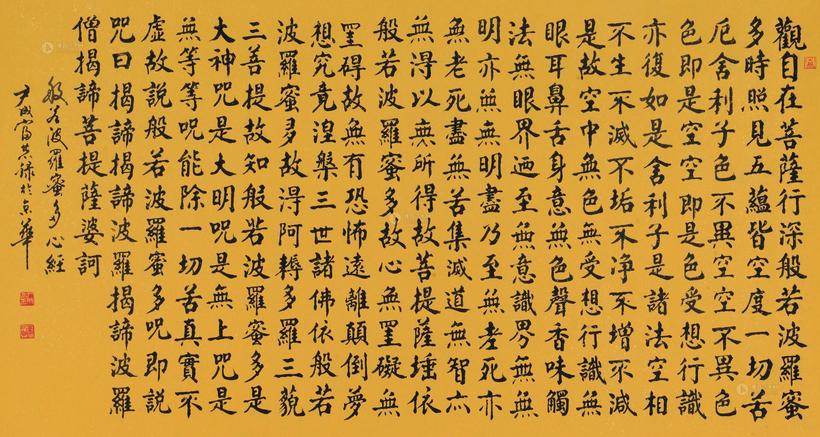 觀自在菩薩行深般若波羅蜜
多時照見五蘊皆空度一切苦
厄舍利子色不異空空不異色
色即是空空即是色受想行識
亦復如是舍利子是諸法空相
不生不滅不垢不净不增不減
是故空中無色無受想行識無
眼耳鼻舌身意無色聲香味觸
法無眼界迺至無意識界無無
明亦無無明盡乃至無老死亦
無老死盡無苦集滅道無智亦
無得以無所得故菩提薩埵依
般若波羅蜜多故心無罣礙無
罣碍故無有恐怖遠離顛倒夢
想究竟涅槃三世諸佛依般若
波羅蜜多故得阿耨多羅三藐
三菩提故知般若波羅蜜多是
大神咒是大明咒是無上咒是
無等等呪能除一切苦真實不
虛故説般若波羅蜜多呪即説
咒曰揭諦揭諦波羅揭諦波羅
僧揭諦菩提薩婆訶
般若波羅蜜多心經
成富恭錄於京華